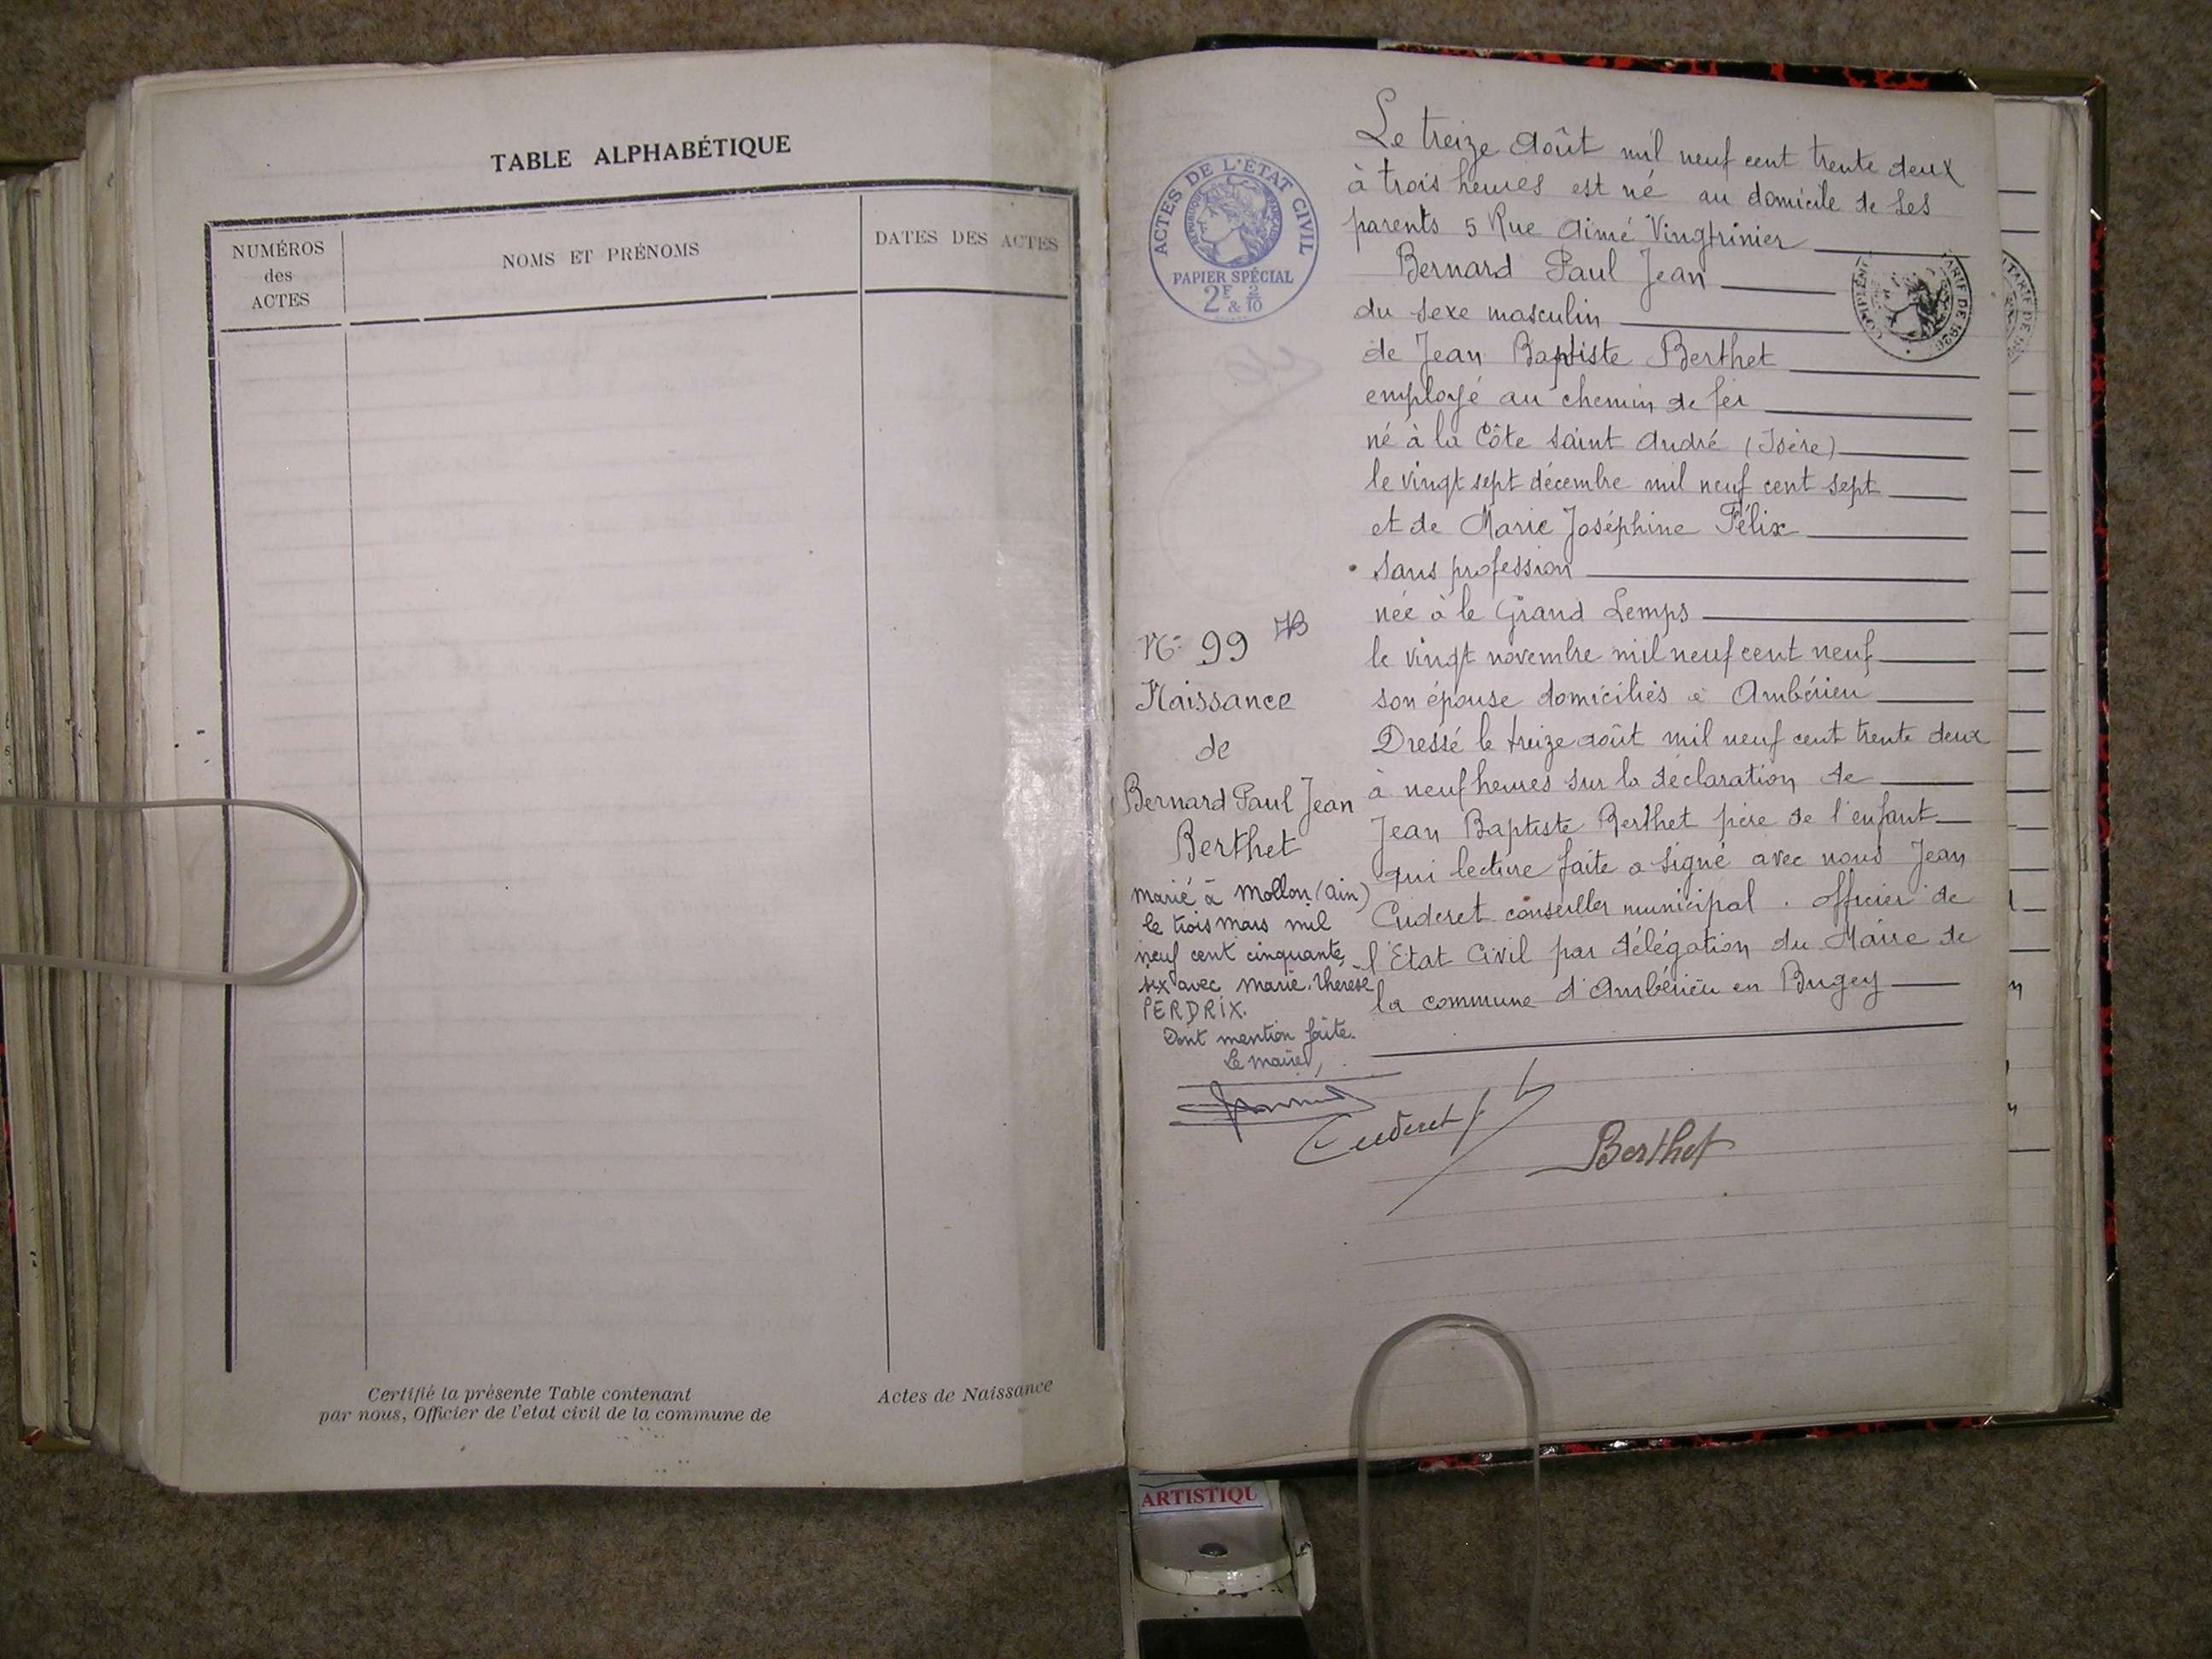 TABLE ALPHABÉTIQUE
NUMÉROS
des
ACTES
NOMS ET PRÉNOMS
DATES DES ACTES
Certifié la présente Table contenant
Actes de Naissance
par nous, Officier de l'etat civil de la commune de
ACTES DE L'ETAT CIVIL
REPUBLIQUE FRANÇAISE
PAPIER SPÉCIAL
2F & 2/10
N° 99
Naissance
de
Bernard Paul Jean
Berthet
marié à Mollon (ain)
le trois mars mil
neuf cent cinquante
six avec Marie. Thérèse
PERDRIX.
Dont mention faite.
Le maire,
Le treize août mil neuf cent trente deux
à trois heures est né au domicile de ses
parents 5 Rue Aimé Vingtrinier
Bernard Paul Jean
du sexe masculin
de Jean Baptiste Berthet
employé au chemin de fer
né à la Côte Saint André (Isère)
le vingt sept décembre mil neuf cent sept
et de Marie Joséphine Félix
sans profession
née à le Grand Lemps
le vingt novembre mil neuf cent neuf
son épouse domiciliés à Ambérieu
Dressé le treize août mil neuf cent trente deux
à neuf heures sur la déclaration de
Jean Baptiste Berthet père de l'enfant
qui lecture faite a signé avec nous Jean
Cuderet conseiller municipal . officier de
l'Etat Civil par délégation du Maire de
la commune d'Ambérieu en Bugey
Cuderet J.
Berthet
TARIF DE 1926
ARTISTIQU